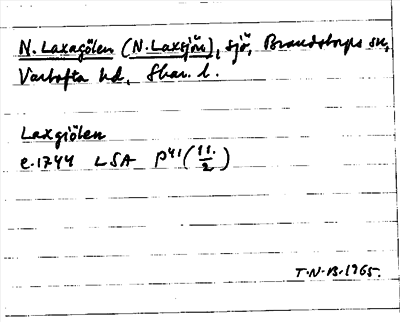 N. Laxagölen (N. Laxsjön), sjö, Brandstorps sn,
Vartofta hd, Skar. l.
Laxgiölen
c. 1744 LSA P41 (11./2)
T.N-B. 1965.